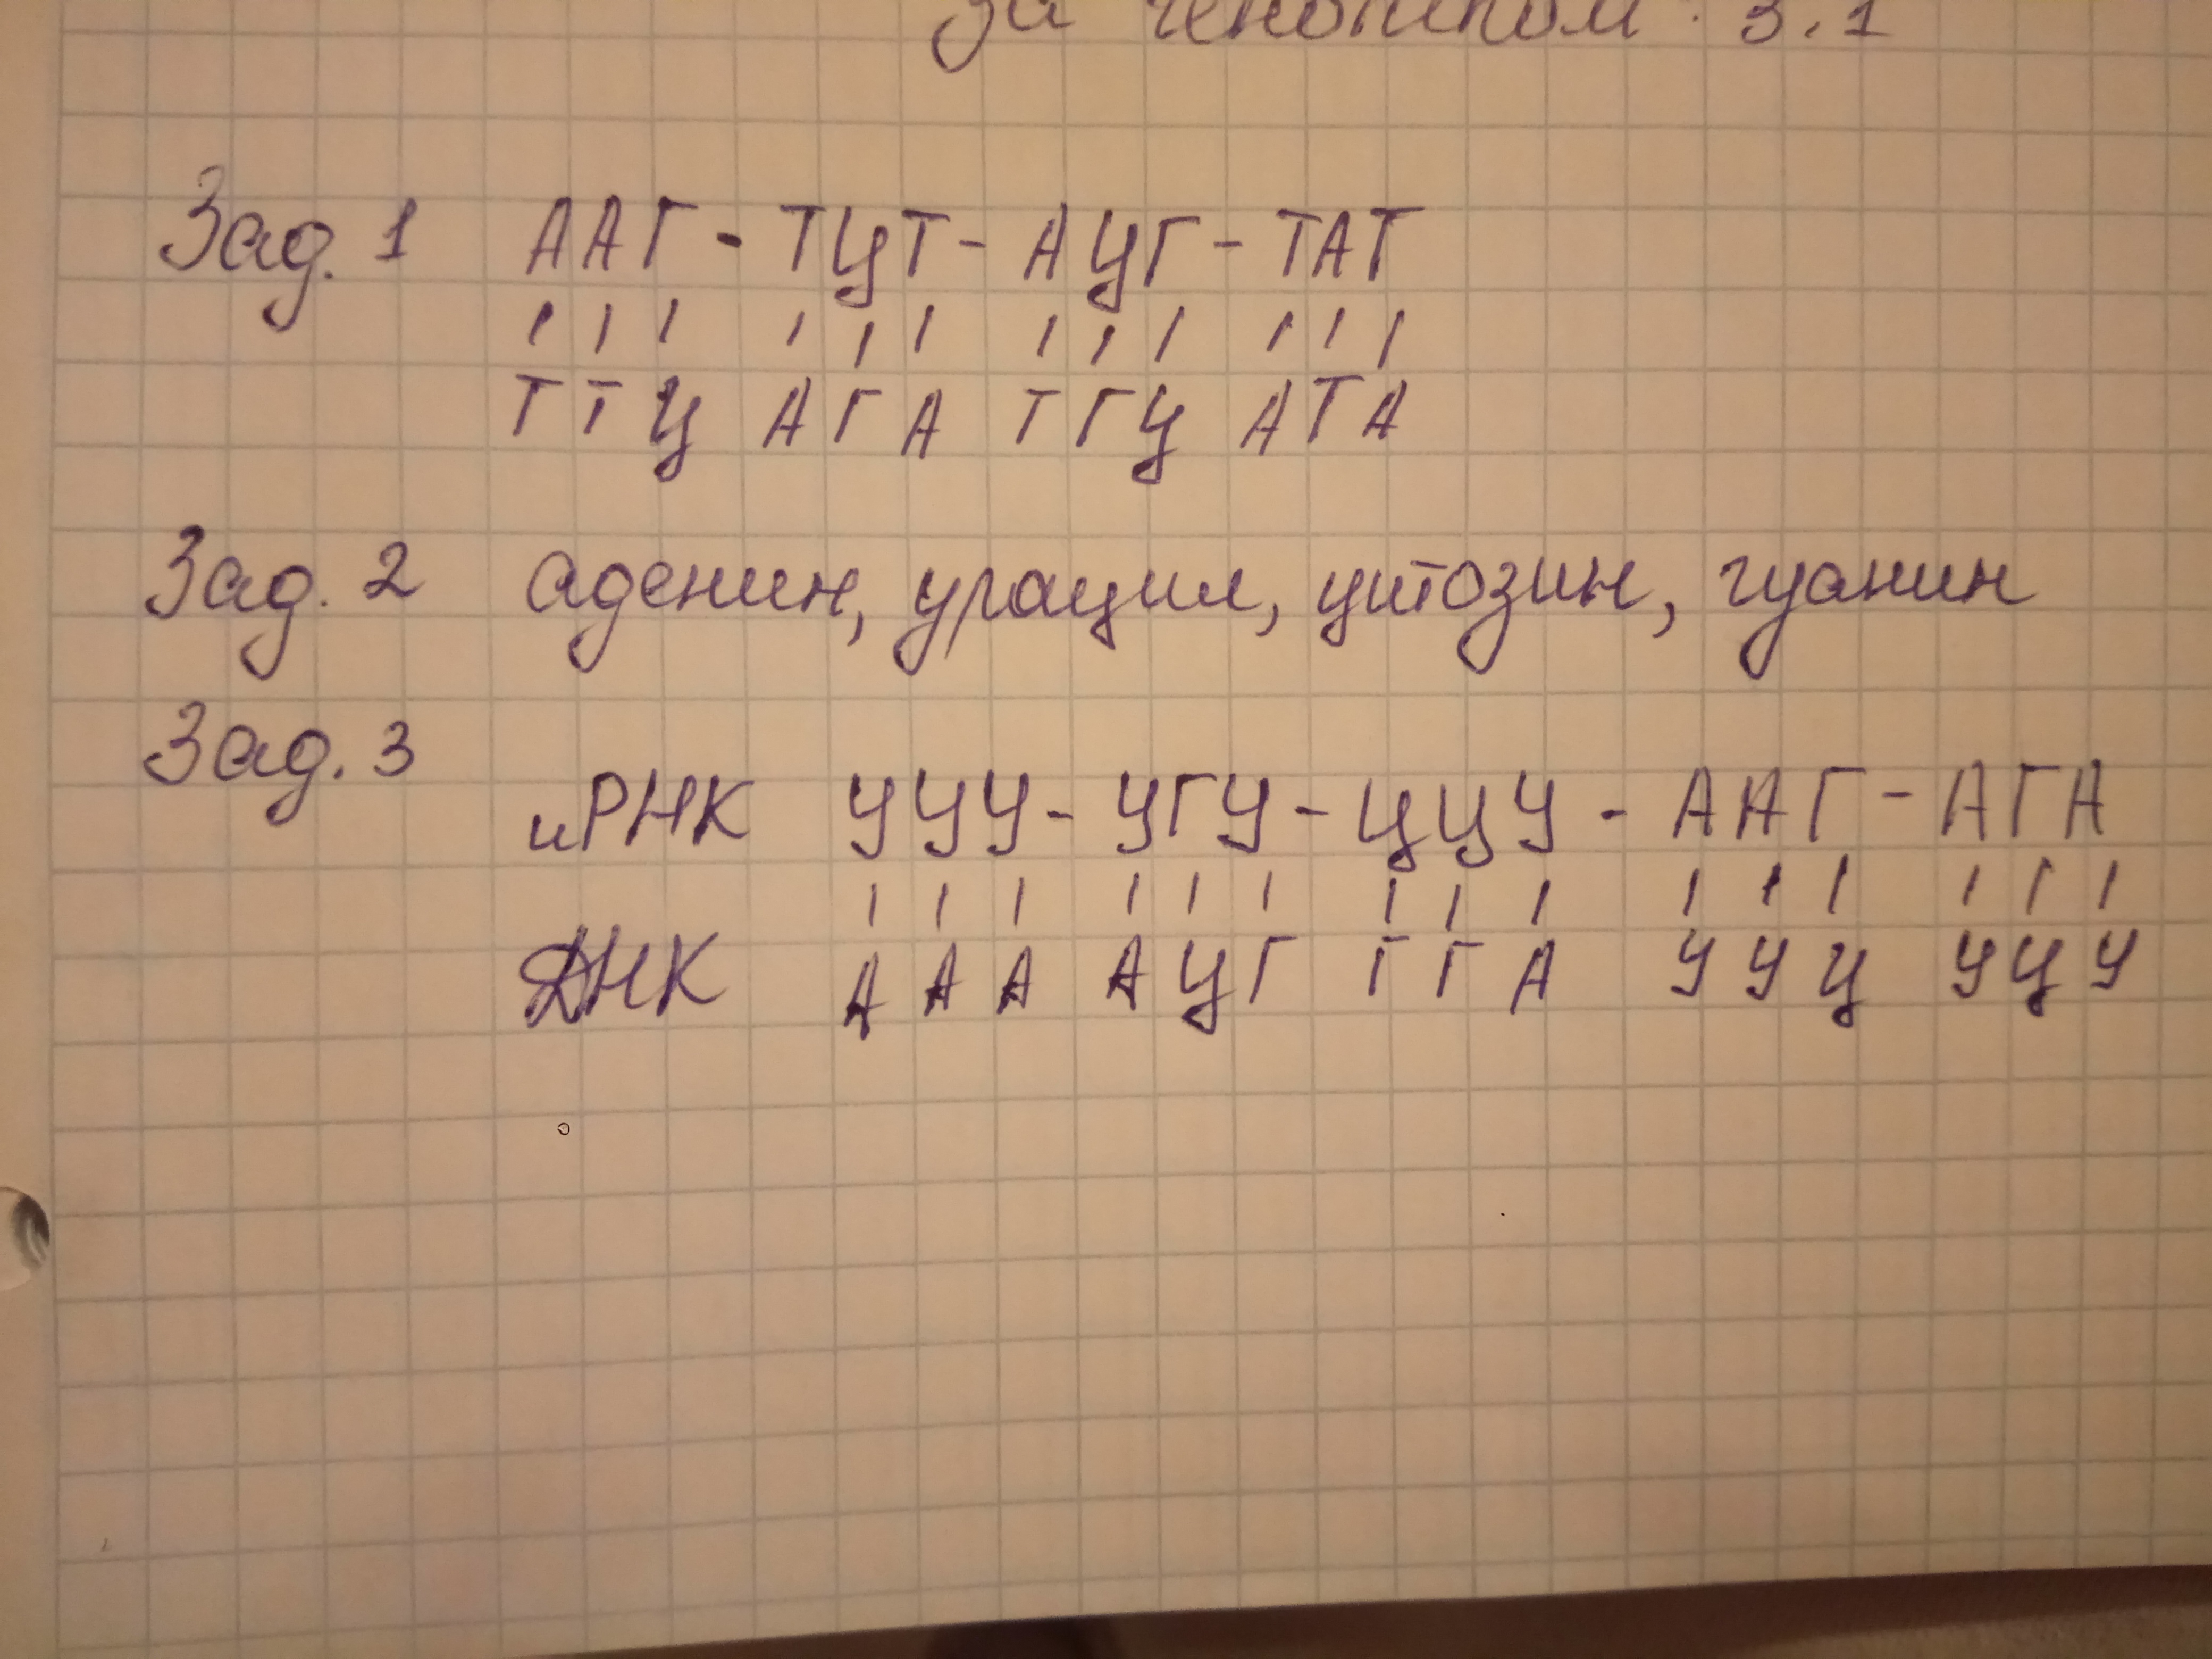 за генотипом: 3.1
Зад. 1 ААГ - ТЦТ - АЦГ - ТАТ
ТТЦ АГА ТГЦ АТА
Зад. 2 аденин, урацил, цитозин, гуанин
Зад. 3
иРНК УУУ - УГУ - ЦЦУ - ААГ - АГА
ДНК ААА АЦГ ГГА УУЦ УЦУ